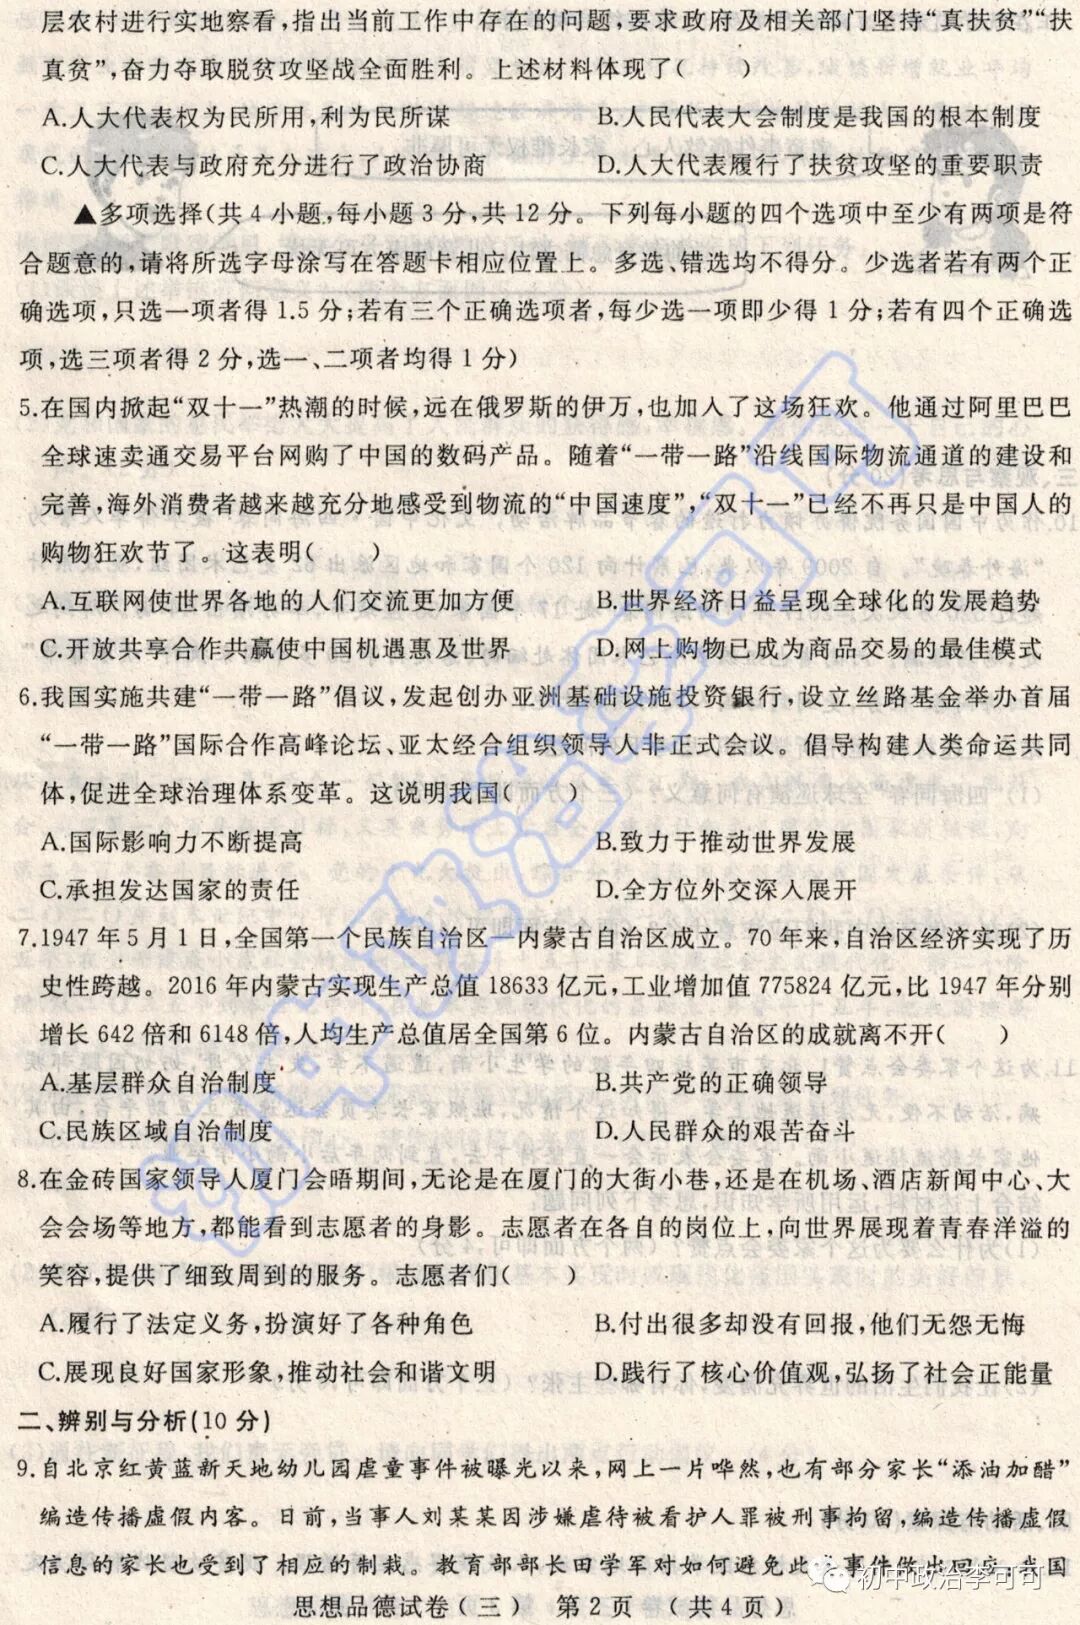 层农村进行实地察看,指出当前工作中存在的问题,要求政府及相关部门坚持“真扶贫”“扶
真贫”,奋力夺取脱贫攻坚战全面胜利。上述材料体现了(　　)
A.人大代表权为民所用,利为民所谋　　B.人民代表大会制度是我国的根本制度
C.人大代表与政府充分进行了政治协商　　D.人大代表履行了扶贫攻坚的重要职责
▲多项选择(共4小题,每小题3分,共12分。下列每小题的四个选项中至少有两项是符
合题意的,请将所选字母涂写在答题卡相应位置上。多选、错选均不得分。少选者若有两个正
确选项,只选一项者得1.5分;若有三个正确选项者,每少选一项即少得1分;若有四个正确选
项,选三项者得2分,选一、二项者均得1分)
5.在国内掀起“双十一”热潮的时候,远在俄罗斯的伊万,也加入了这场狂欢。他通过阿里巴巴
全球速卖通交易平台网购了中国的数码产品。随着“一带一路”沿线国际物流通道的建设和
完善,海外消费者越来越充分地感受到物流的“中国速度”,“双十一”已经不再只是中国人的
购物狂欢节了。这表明(　　)
A.互联网使世界各地的人们交流更加方便　　B.世界经济日益呈现全球化的发展趋势
C.开放共享合作共赢使中国机遇惠及世界　　D.网上购物已成为商品交易的最佳模式
6.我国实施共建“一带一路”倡议,发起创办亚洲基础设施投资银行,设立丝路基金举办首届
“一带一路”国际合作高峰论坛、亚太经合组织领导人非正式会议。倡导构建人类命运共同
体,促进全球治理体系变革。这说明我国(　　)
A.国际影响力不断提高　　B.致力于推动世界发展
C.承担发达国家的责任　　D.全方位外交深入展开
7.1947年5月1日,全国第一个民族自治区—内蒙古自治区成立。70年来,自治区经济实现了历
史性跨越。2016年内蒙古实现生产总值18633亿元,工业增加值775824亿元,比1947年分别
增长642倍和6148倍,人均生产总值居全国第6位。内蒙古自治区的成就离不开(　　)
A.基层群众自治制度　　B.共产党的正确领导
C.民族区域自治制度　　D.人民群众的艰苦奋斗
8.在金砖国家领导人厦门会晤期间,无论是在厦门的大街小巷,还是在机场、酒店新闻中心、大
会会场等地方,都能看到志愿者的身影。志愿者在各自的岗位上,向世界展现着青春洋溢的
笑容,提供了细致周到的服务。志愿者们(　　)
A.履行了法定义务,扮演好了各种角色　　B.付出很多却没有回报,他们无怨无悔
C.展现良好国家形象,推动社会和谐文明　　D.践行了核心价值观,弘扬了社会正能量
二、辨别与分析(10分)
9.自北京红黄蓝新天地幼儿园虐童事件被曝光以来,网上一片哗然,也有部分家长“添油加醋”
编造传播虚假内容。日前,当事人刘某某因涉嫌虐待被看护人罪被刑事拘留,编造传播虚假
信息的家长也受到了相应的制裁。教育部部长田学军对如何避免此事件做出回应:我国
初中政治李可可
思想品德试卷(三)　第2页　(共4页)